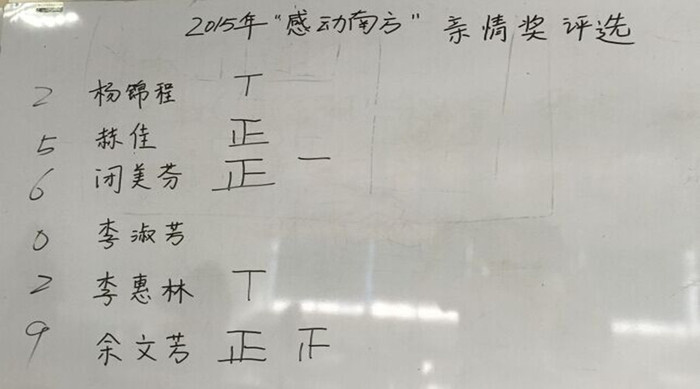 2015年“感动南方”亲情奖评选
2 杨锦程 丅
5 赫佳 正
6 闭美芬 正 一
0 李淑芳
2 李惠林 丅
9 余文芳 正 𤴓